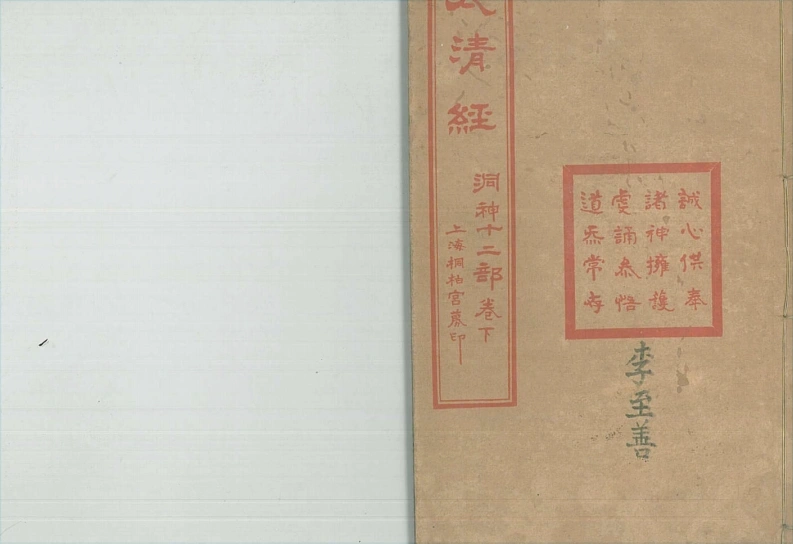 誠心供奉
諸神擁護
虔誦叅悟
道炁常存
李至善
清經
洞神十二部卷下
上海桐柏宮募印